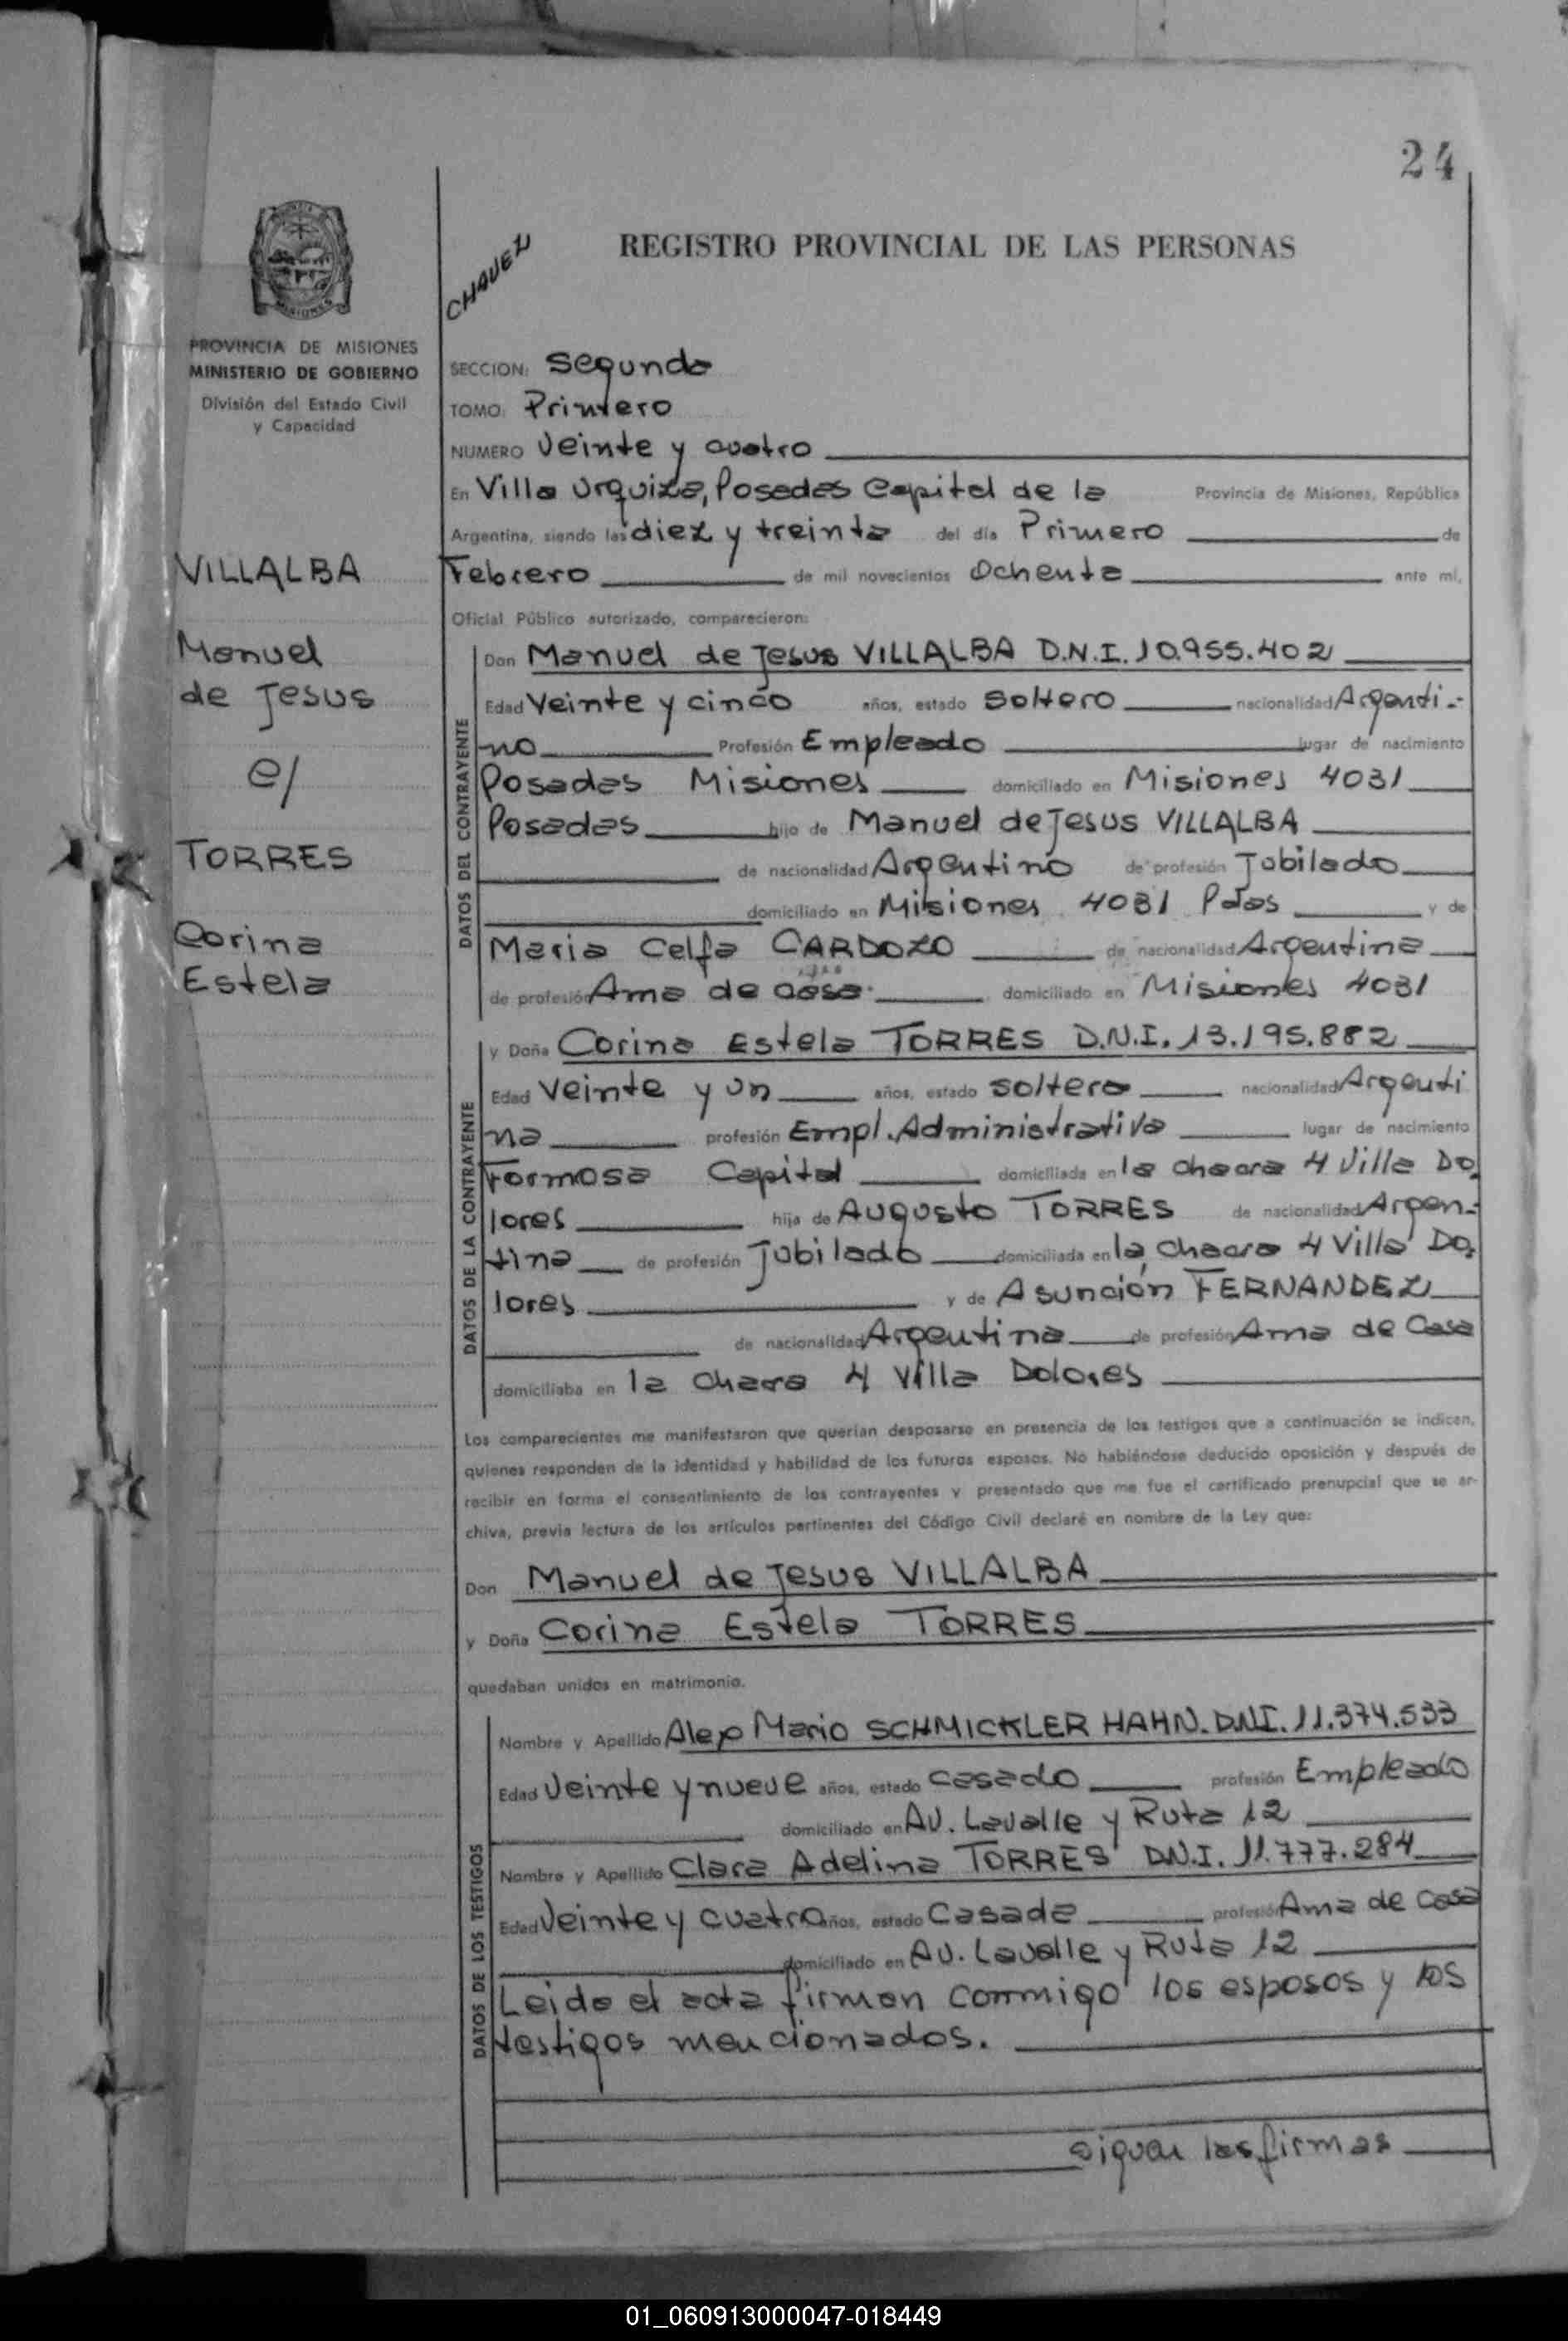 24
REGISTRO PROVINCIAL DE LAS PERSONAS
CHAVEZ
MISIONES
PROVINCIA DE MISIONES
MINISTERIO DE GOBIERNO
División del Estado Civil
y Capacidad
VILLALBA
Manuel
de Jesus
c/
TORRES
Corina
Estela
SECCION: Segunda
TOMO: Primero
NUMERO Veinte y cuatro
En Villa Urquiza, Posadas Capital de la Provincia de Misiones, República
Argentina, siendo las diez y treinta del día Primero de
Febrero de mil novecientos Ochenta ante mí,
Oficial Público autorizado, comparecieron:
DATOS DEL CONTRAYENTE
Don Manuel de Jesus VILLALBA D.N.I. 10.955.402
Edad Veinte y cinco años, estado Soltero nacionalidad Argenti-
no Profesión Empleado lugar de nacimiento
Posadas Misiones domiciliado en Misiones 4031
Posadas hijo de Manuel de Jesus VILLALBA
de nacionalidad Argentino de profesión Jubilado
domiciliado en Misiones 4031 Pdas y de
Maria Celfa CARDOZO de nacionalidad Argentina
de profesión Ama de casa domiciliado en Misiones 4031
DATOS DE LA CONTRAYENTE
y Doña Corina Estela TORRES D.N.I. 13.195.882
Edad Veinte y un años, estado soltera nacionalidad Argenti
na profesión Empl. Administrativa lugar de nacimiento
Formosa Capital domiciliada en la chacra 4 Villa Do
lores hija de Augusto TORRES de nacionalidad Argen-
tina de profesión Jubilado domiciliada en la chacra 4 Villa Do
lores y de Asunción FERNANDEZ
de nacionalidad Argentina de profesión Ama de Casa
domiciliaba en la chacra 4 Villa Dolores
Los comparecientes me manifestaron que querían desposarse en presencia de los testigos que a continuación se indican,
quienes responden de la identidad y habilidad de los futuros esposos. No habiéndose deducido oposición y después de
recibir en forma el consentimiento de los contrayentes y presentado que me fue el certificado prenupcial que se ar-
chiva, previa lectura de los artículos pertinentes del Código Civil declaré en nombre de la Ley que:
Don Manuel de Jesus VILLALBA
y Doña Corina Estela TORRES
quedaban unidos en matrimonio.
DATOS DE LOS TESTIGOS
Nombre y Apellido Alex Mario SCHMICKLER HAHN. DNI. 11.374.533
Edad Veinte y nueve años, estado casado profesión Empleado
domiciliado en AV. Lavalle y Ruta 12
Nombre y Apellido Clara Adelina TORRES DN.I. 11.777.284
Edad Veinte y cuatro años, estado Casada profesión Ama de casa
domiciliado en AV. Lavalle y Ruta 12
Leida el acta firman conmigo los esposos y los
testigos mencionados.
siguen las firmas
01_060913000047-018449